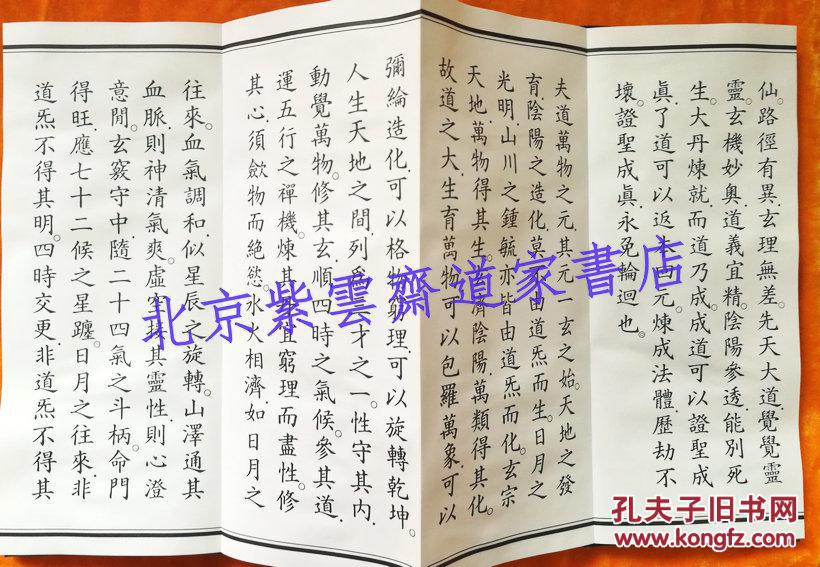 仙。路徑有異。玄理無差。先天大道。覺覺靈
靈。玄機妙奧。道義宜精。陰陽參透。能別死
生。大丹煉就。而道乃成。成道可以證聖成
眞。了道可以返本四元。煉成法體。歷劫不
壞。證聖成眞。永免輪迴也。
夫道萬物之元。其元一玄之始。天地之發
育。陰陽之造化。莫不由道炁而生。日月之
光明。山川之鍾毓。亦皆由道炁而化。玄宗
天地。萬物得其生。玄濟陰陽。萬類得其化。
故道之大。生育萬物。可以包羅萬象。可以
彌綸造化。可以格物窮理。可以旋轉乾坤。
人生天地之間。列爲三才之一。性守其內。
動覺萬物。修其玄。順四時之氣候。參其道。
運五行之禪機。煉其 宜窮理而盡性。修
其心。須歛物而絶慾。水火相濟。如日月之
往來。血氣調和。似星辰之旋轉。山澤通其
血脈。則神清氣爽。虛空接其靈性。則心澄
意閒。玄竅守中。隨二十四氣之斗柄。命門
得旺。應七十二候之星躔。日月之往來。非
道炁不得其明。四時交更。非道炁不得其
北京紫雲齋道家書店
孔夫子旧书网
www.kongfz.com